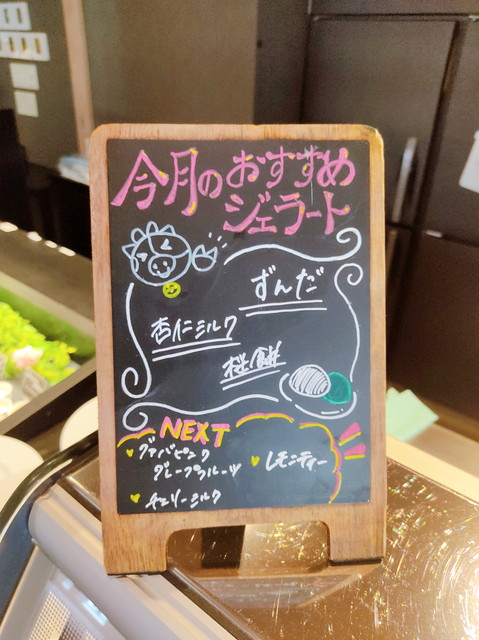 今月のおすすめ
ジェラート
ずんだ
杏仁ミルク
桜餅
NEXT
グァバピンク
グレープフルーツ
レモンティー
チェリーミルク